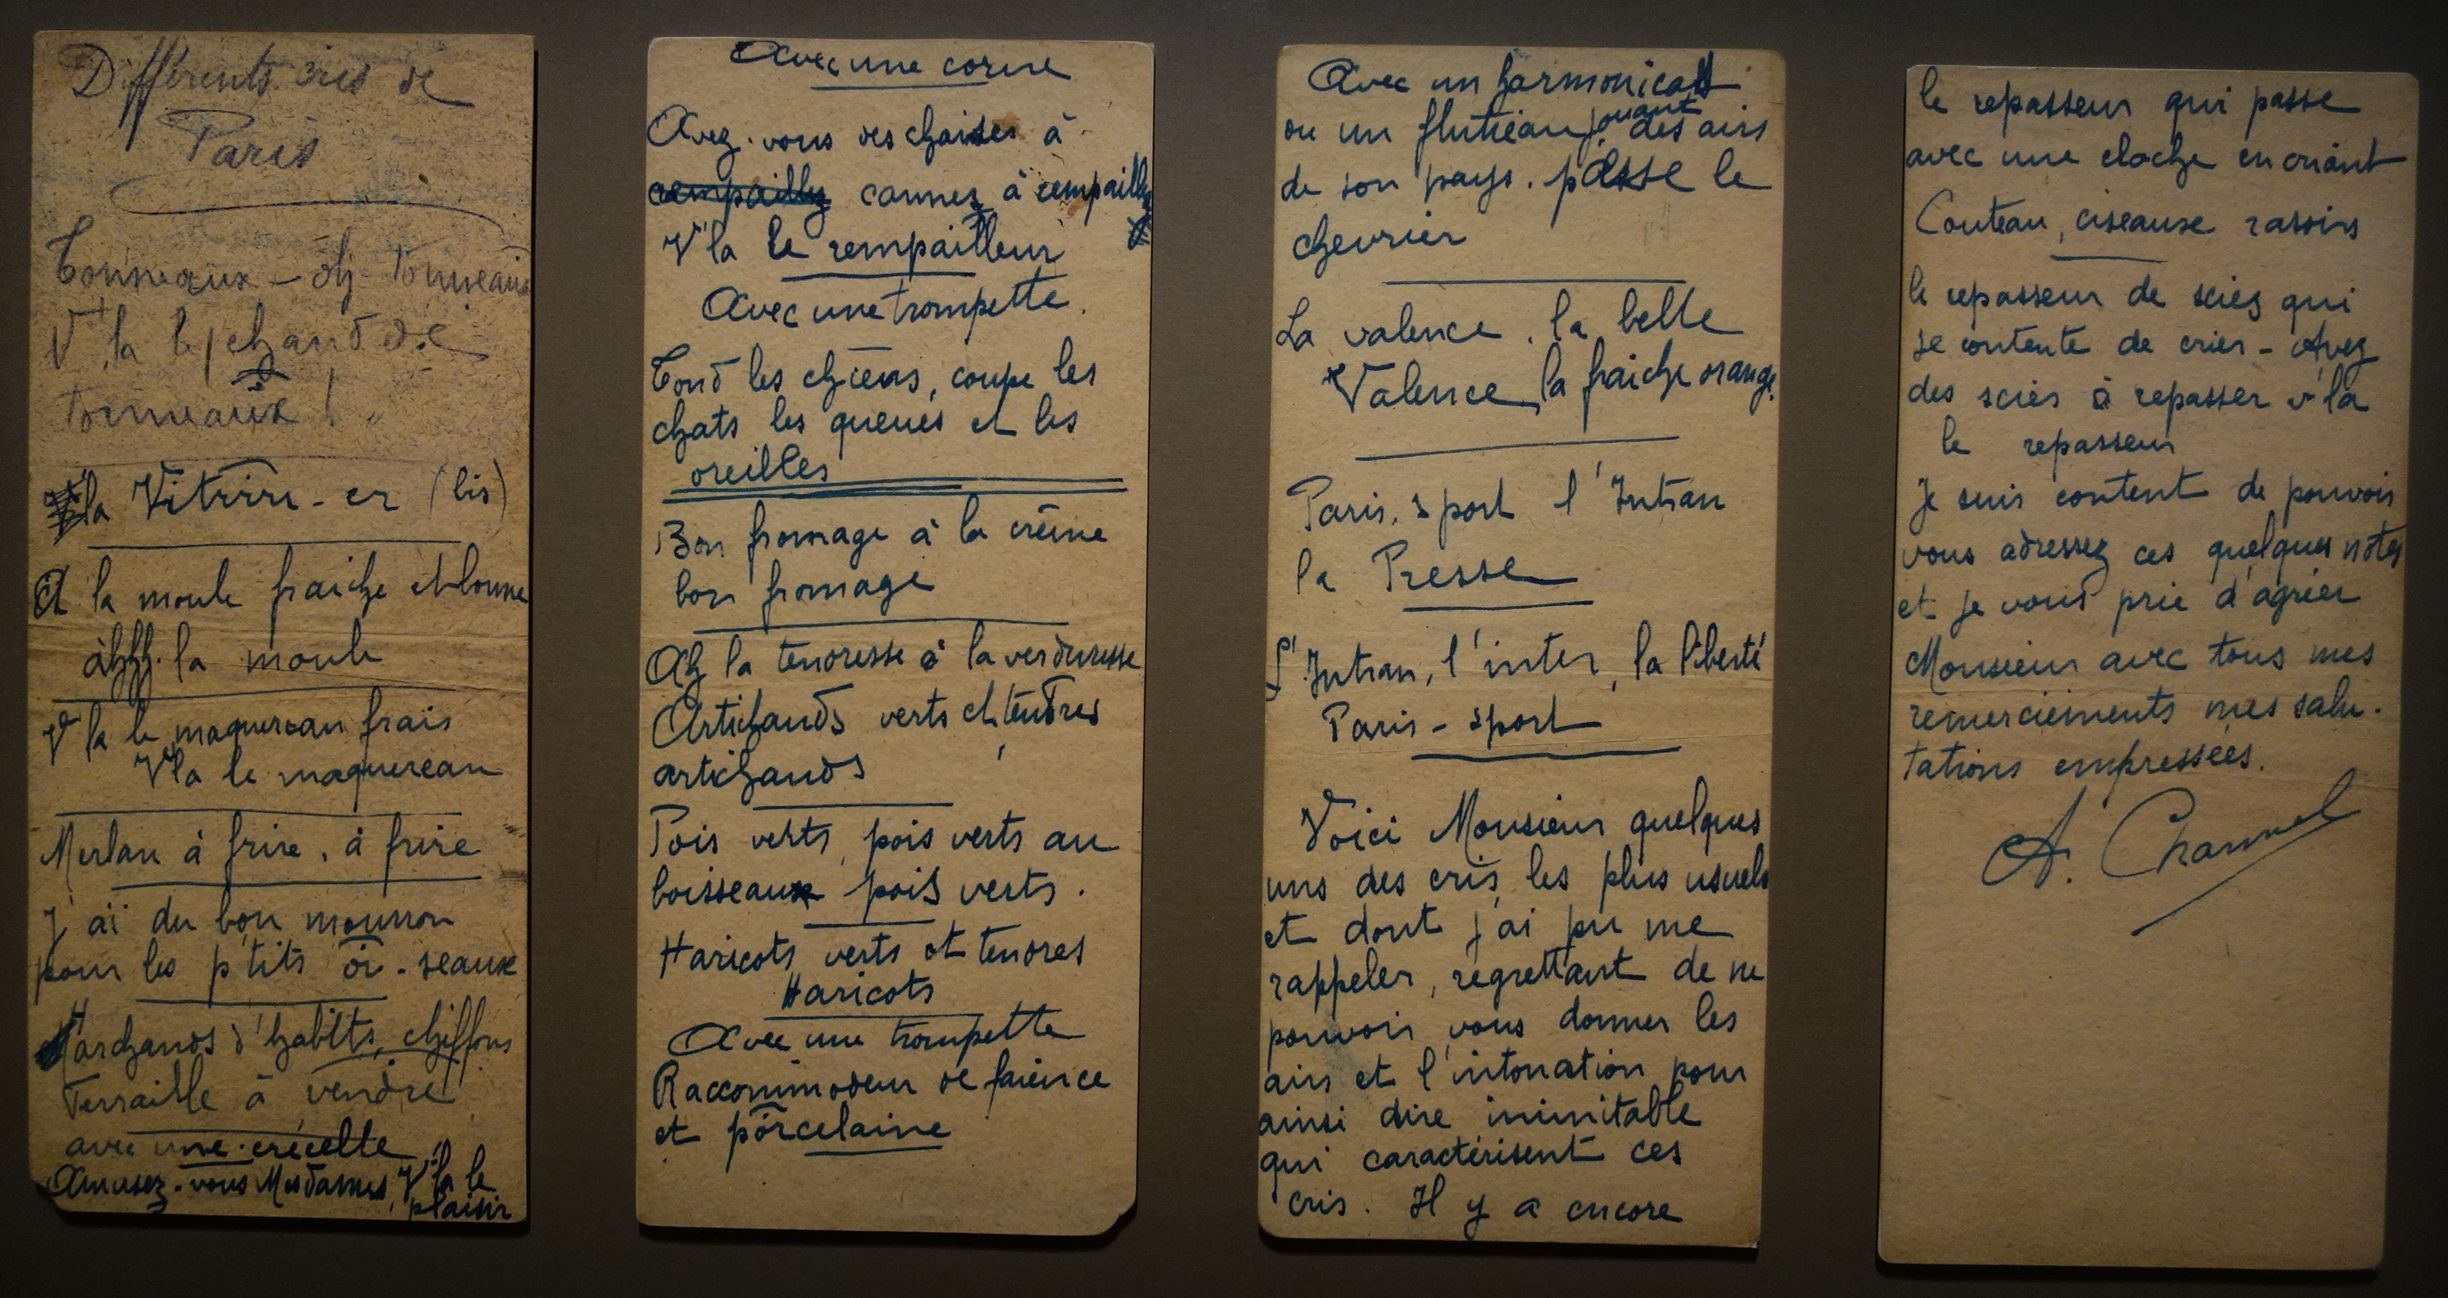 Différents cris de
Paris
Tonneaux - oh tonneaux
V'la le chand de
tonneaux !
V'la Vitriu - er (lis)
A la moule fraiche et bonne
àhhh. la moule
V'la le maquereau frais
V'la le maquereau
Merlan à frire, à frire
J'ai du bon mouron
pour les p'tits oi - seaux
Marchands d'habits, chiffons
Ferraille à vendre
avec une crécelle
Amusez-vous Mesdames, V'la le
plaisir
Avec une corne
Avez-vous des chaises à
rempaillez cannez à rempaillez
V'la le rempailleur
Avec une trompette.
Tond les chiens, coupe les
chats les queues et les
oreilles
Bon fromage à la crème
bon fromage
Ah la tendresse à la verduresse
Artichauds verts et tendres
artichauds
Pois verts, pois verts au
boisseaux pois verts.
Haricots verts et tendres
Haricots
Avec une trompette
Raccommodeur de faience
et porcelaine
Avec un harmonica
ou un fluteau jouant des airs
de son pays. passe le
chevrier
La valence, la belle
Valence, la fraiche orange.
Paris, sport l'Intran
la Presse
L'Intran, l'inter, la liberté
Paris - sport
Voici Monsieur quelques
uns des cris les plus usuels
et dont j'ai pu me
rappeler, regrettant de ne
pouvoir vous donner les
airs et l'intonation pour
ainsi dire inimitable
qui caractérisent ces
cris. Il y a encore
le repasseur qui passe
avec une cloche en criant
Couteau, ciseaux rasoirs
le repasseur de scies qui
se contente de crier - Avez
des scies à repasser v'la
le repasseur
Je suis content de pouvoir
vous adressez ces quelques notes
et je vous prie d'agréer
Monsieur avec tous mes
remerciements mes salu-
tations empressées.
A. Charmel